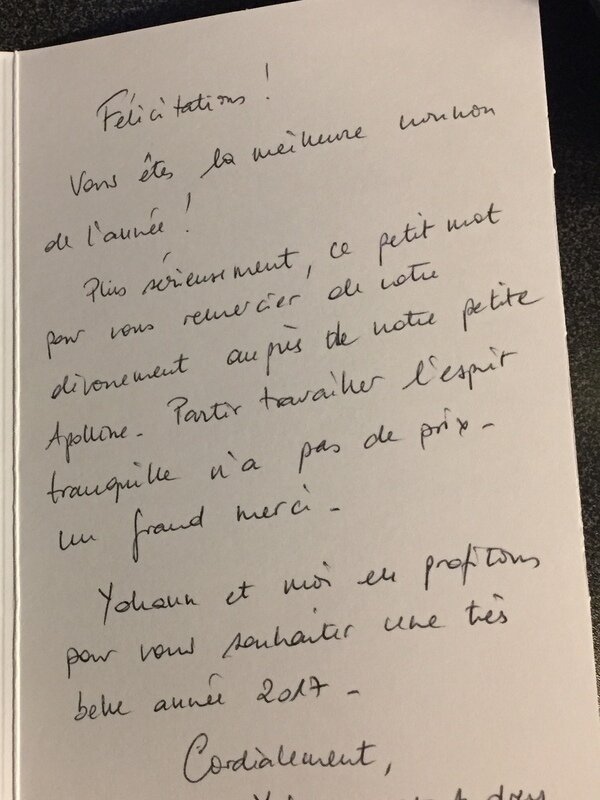 Félicitations !
Vous êtes la meilleure nounou
de l'année !
Plus sérieusement, ce petit mot
pour vous remercier de votre
dévouement auprès de notre petite
Apolline. Partir travailler l'esprit
tranquille n'a pas de prix.
un grand merci.
Yohann et moi en profitons
pour vous souhaiter une très
belle année 2017.
Cordialement,